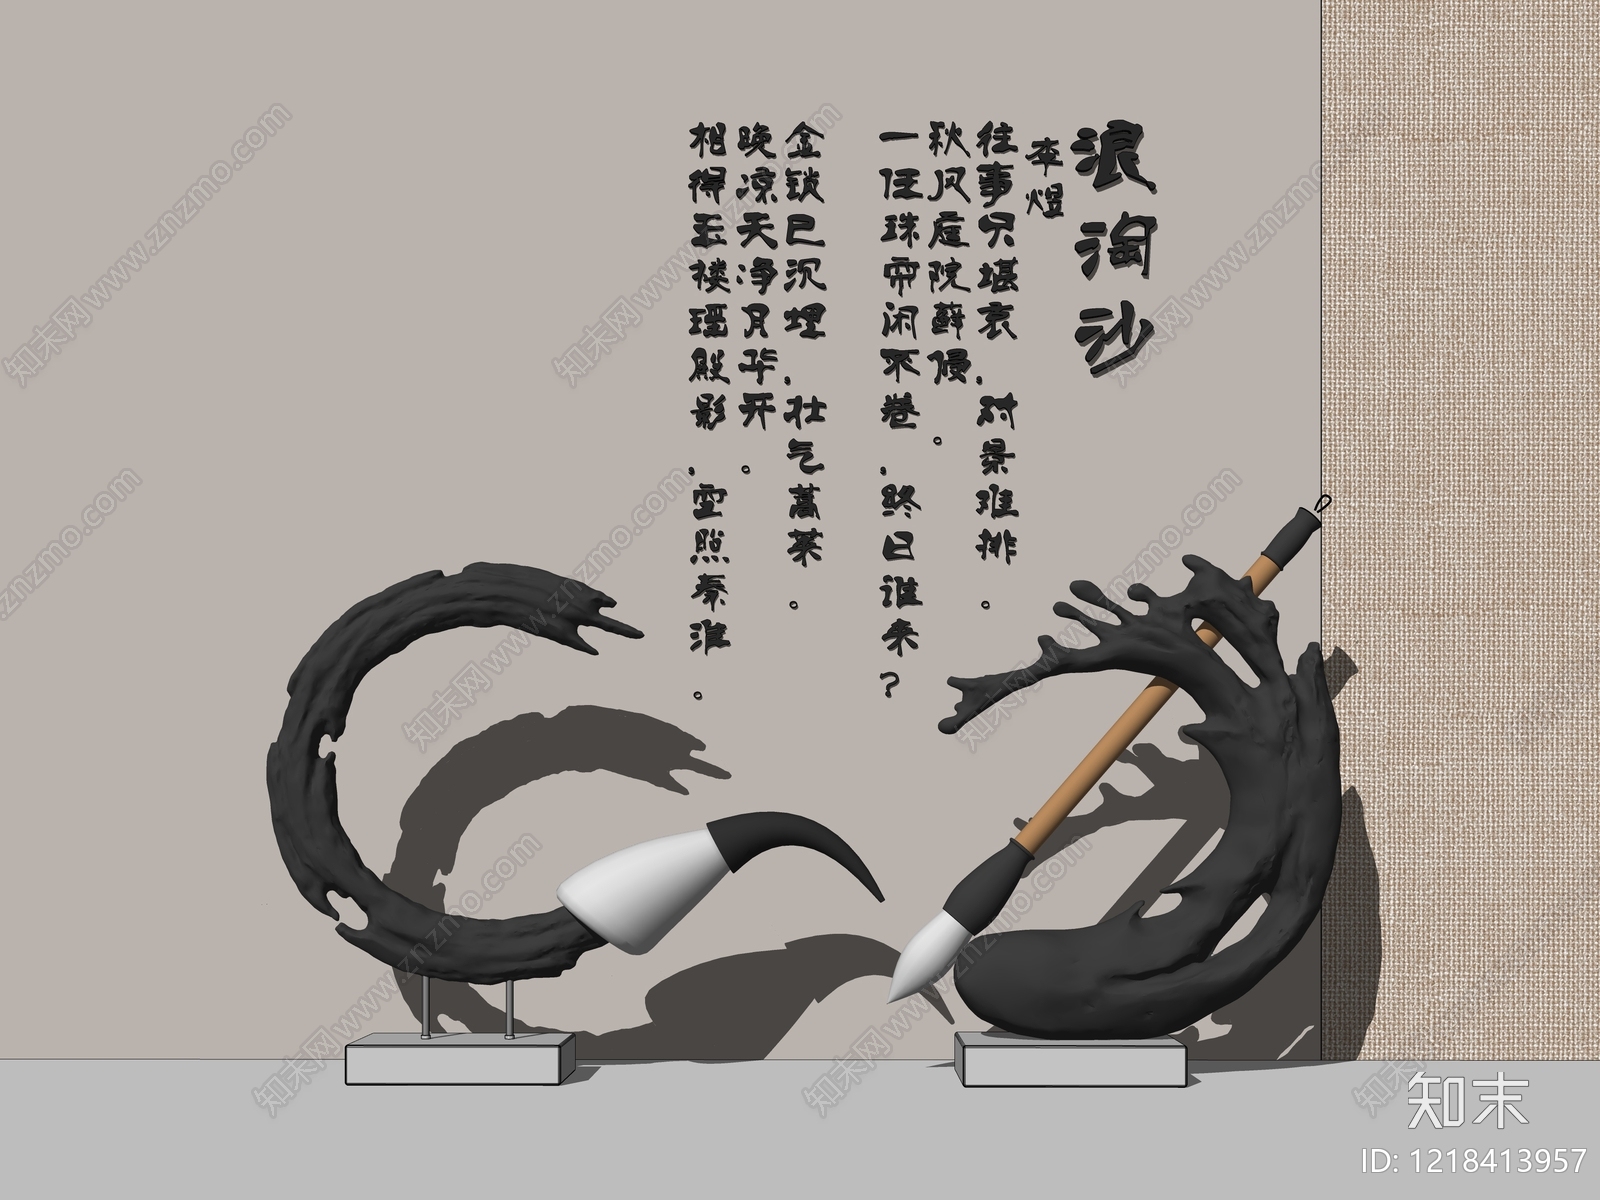 浪淘沙
李煜
往事只堪哀，对景难排。
秋风庭院藓侵。
一任珠帘闲不卷，终日谁来？
金锁已沉埋，壮气蒿莱。
晚凉天净月华开。
相得玉楼瑶殿影，空照秦淮。
知末网www.znzmo.com
知末
ID: 1218413957